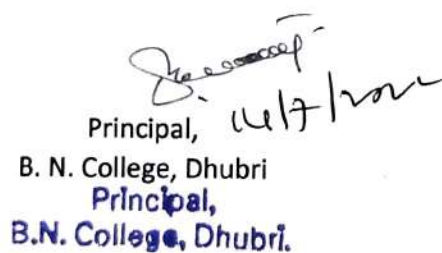 Principal, 14/7/2022
B. N. College, Dhubri
Principal,
B.N. College, Dhubri.